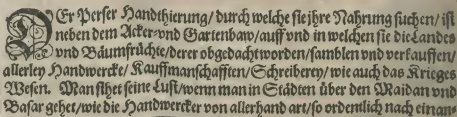 DEr Perser Handthierung/ durch welche sie jhre Nahrung suchen/ ist
neben dem Acker-vnd Gartenbaw/ auff vnd in welchen sie die Landes
vnd Bäumfrüchte/ derer obgedacht worden/ samblen vnd verkauffen/
allerley Handwercke/ Kauffmanschafften/ Schreiberey/ wie auch das Krieges
Wesen. Man sihet seine Lust/ wenn man in Städten über den Maidan vnd
Basar gehet/ wie die Handwercker von allerhand art/ so ordentlich nach einan-